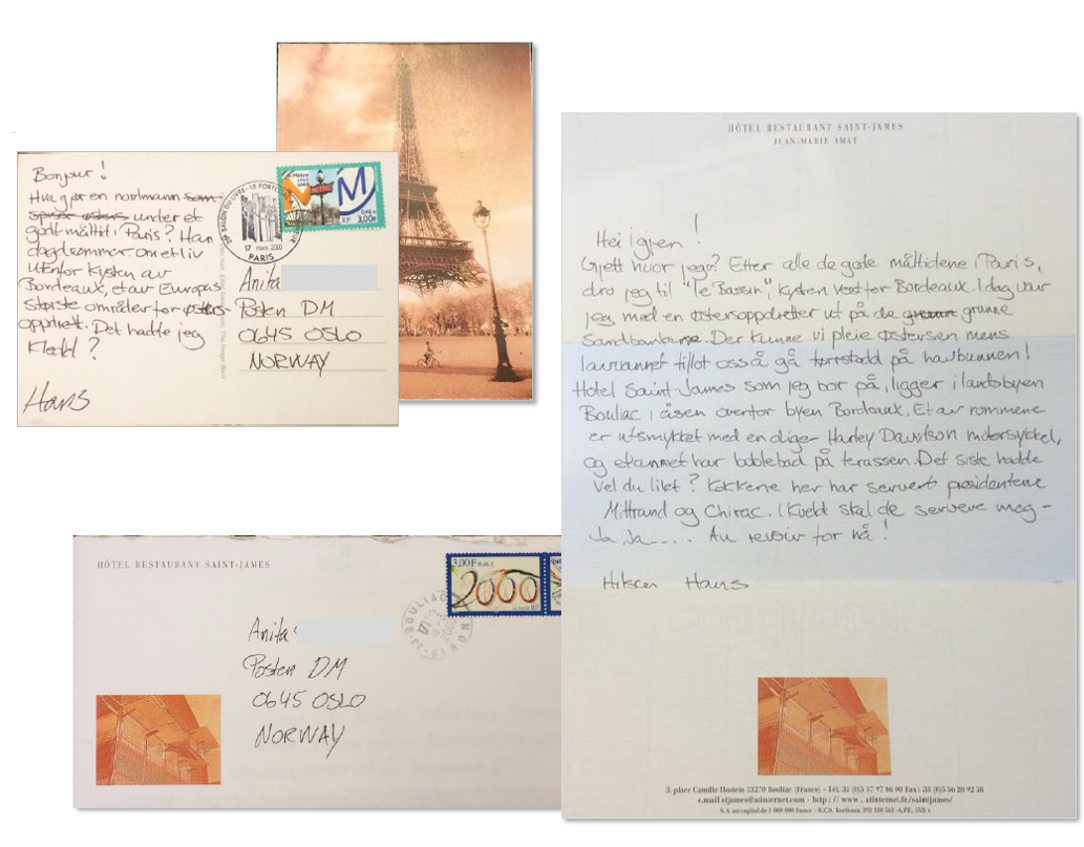 Bonjour!
Hva gjør en nordmann som
spiser østers under et
godt måltid i Paris? Han
dagdrømmer om et liv
utenfor kysten av
Bordeaux, et av Europas
Største områder for østers-
oppdrett. Det hadde jeg
Hans
Metro
METRO
M
0,46 €
3,00F
RF
SALON DU LIVRE - LE PORT
17 mars 2000
PARIS
Anita
Posten DM
0645 OSLO
NORWAY
HÔTEL RESTAURANT SAINT-JAMES
JEAN-MARIE AMAT
Hei igjen!
Gjett hvor jeg er? Etter alle de gode måltidene i Paris,
dro jeg til "Le Bassin", kysten vest for Bordeaux. I dag var
jeg med en østersoppdretter ut på de grunne
Sandbankene. Der kunne vi pleie østersen mens
lavvannet tillot oss å gå tørrskodd på havbunnen!
Hotel Saint-James som jeg bor på, ligger i landsbyen
Bouliac i åsen overfor byen Bordeaux. Et av rommene
er utsmykket med en diger Harley Davidson motorsykkel,
og et annet har boblebad på terassen. Det siste hadde
vel du likt? Kokkene her har servert presidentene
Mittrand og Chirac. I kveld skal de servere meg -
Ja, Ja.... Au revoir for nå!
Hilsen Hans
3, place Camille Hostein 33270 Bouliac (France) - Tél. 33 (0)5 57 97 06 00 Fax : 33 (0)5 56 20 92 58
e.mail stjames@atinternet.com - http : // www . atinternet.fr/saintjames/
S.A. au capital de 1 000 000 francs - R.C.S. Bordeaux
HÔTEL RESTAURANT SAINT-JAMES
3,00F 0,46 €
2000
33-BOULIAC
GIRONDE
Anita
Posten DM
0645 OSLO
NORWAY